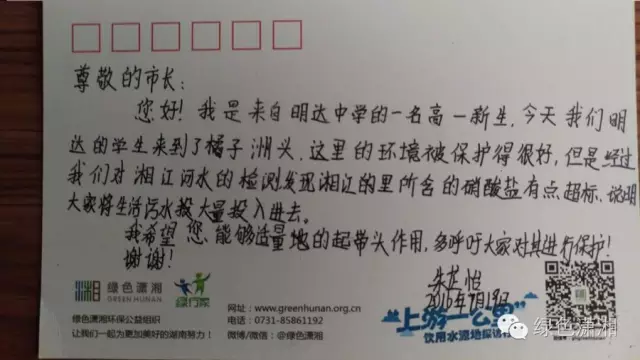 尊敬的市长：
您好！我是来自明达中学的一名高一新生，今天我们明
达的学生来到了橘子洲头，这里的环境被保护得很好，但是经过
我们对湘江河水的检测发现湘江的里所含的硝酸盐有点超标，说明
大家将生活污水投大量投入进去。
我希望您能够适量地的起带头作用，多呼吁大家对其进行保护！
谢谢！
2016年7月19日
湘 绿色潇湘
GREEN HUNAN
绿行家
绿色潇湘环保公益组织
让我们一起为更加美好的湖南努力！
网址：www.greenhunan.org.cn
电话：0731-85861192
微博/微信：@绿色潇湘
“上游一公里”
饮用水源地探访
绿色潇湘